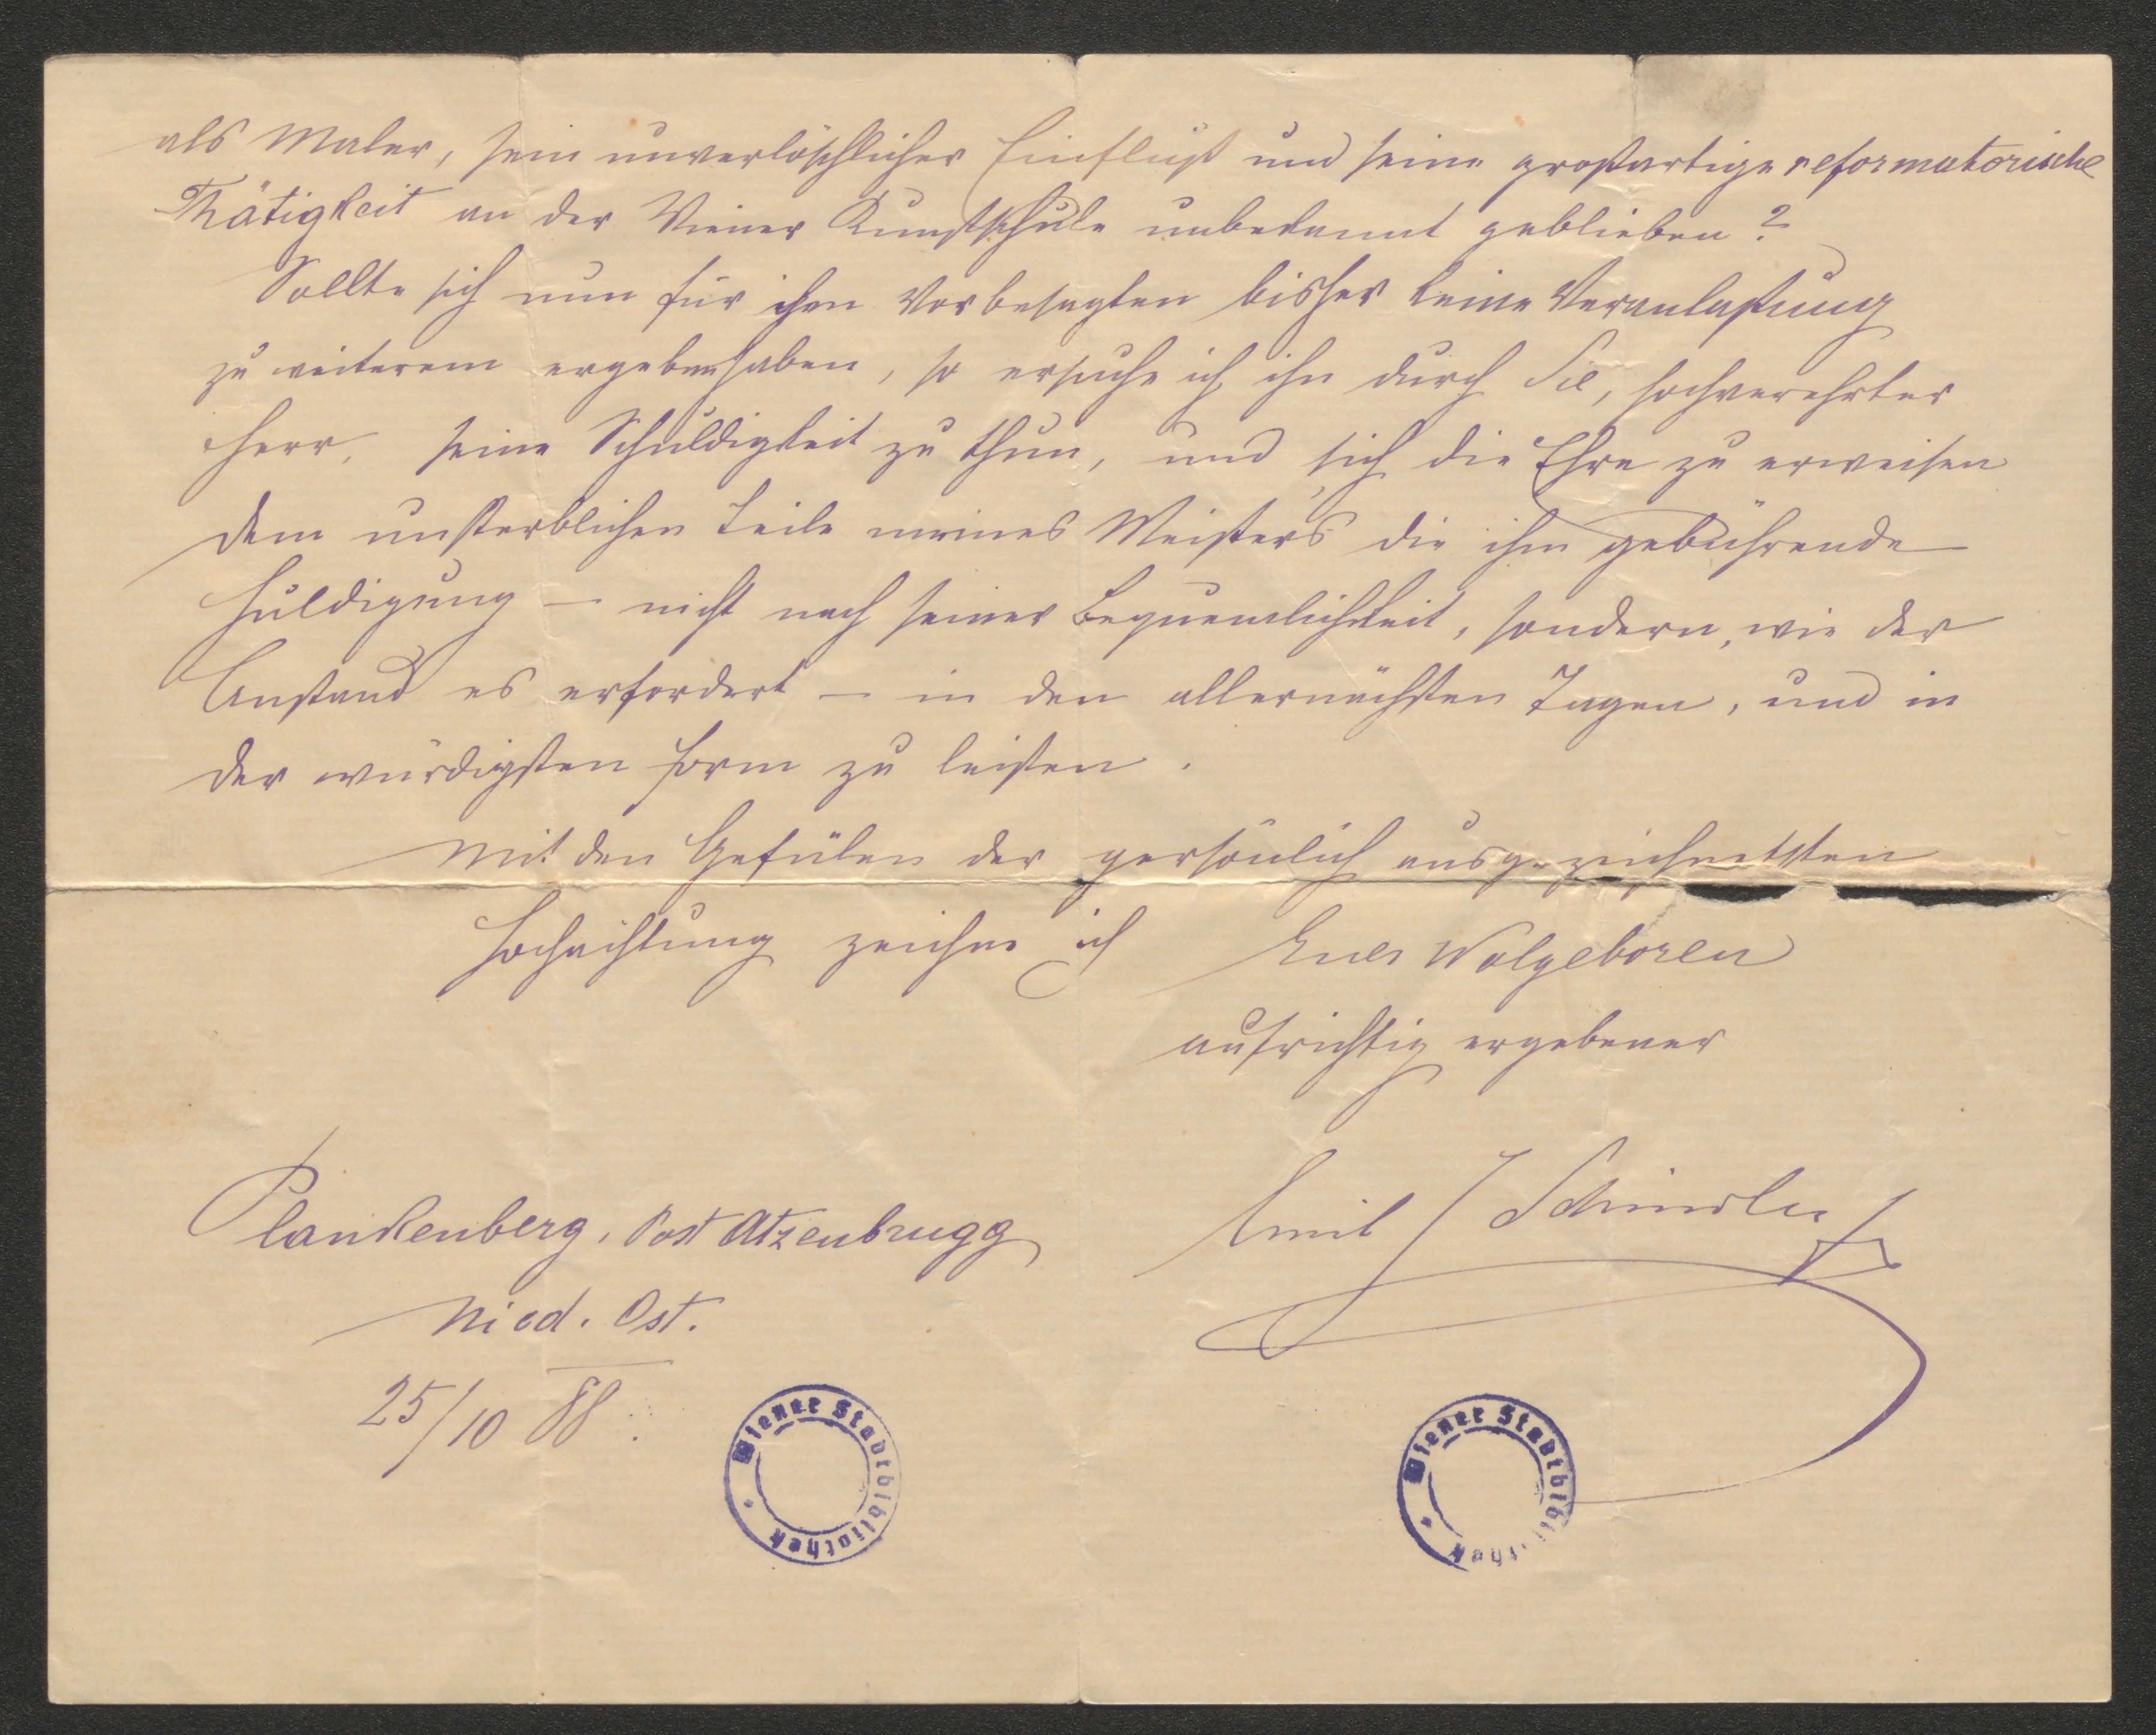 als Maler, sein unverlöschlicher Einfluß und seine großartige reformatorische
Thätigkeit an der Wiener Kunstschule unbekannt geblieben?
Sollte sich nun für ihn Vorbesagten bisher keine Veranlaßung
zu weiterem ergeben haben, so ersuche ich ihn durch Sie, hochverehrter
Herr, seine Schuldigkeit zu thun, und sich die Ehre zu erweisen
dem unsterblichen Teile meines Meisters die ihm gebührende
Huldigung — nicht nach seiner Bequemlichkeit, sondern, wie der
Anstand es erfordert — in den allernächsten Tagen, und in
der würdigsten Form zu leisten.
Mit den Gefülen der persönlich ausgezeichnetsten
Hochachtung zeichne ich Euer Wolgeboren
aufrichtig ergebener
Emil J Schindler
Plankenberg, Post Atzenbrugg
Nied. Öst.
25/10 88.
Wiener Stadtbibliothek
Wiener Stadtbibliothek